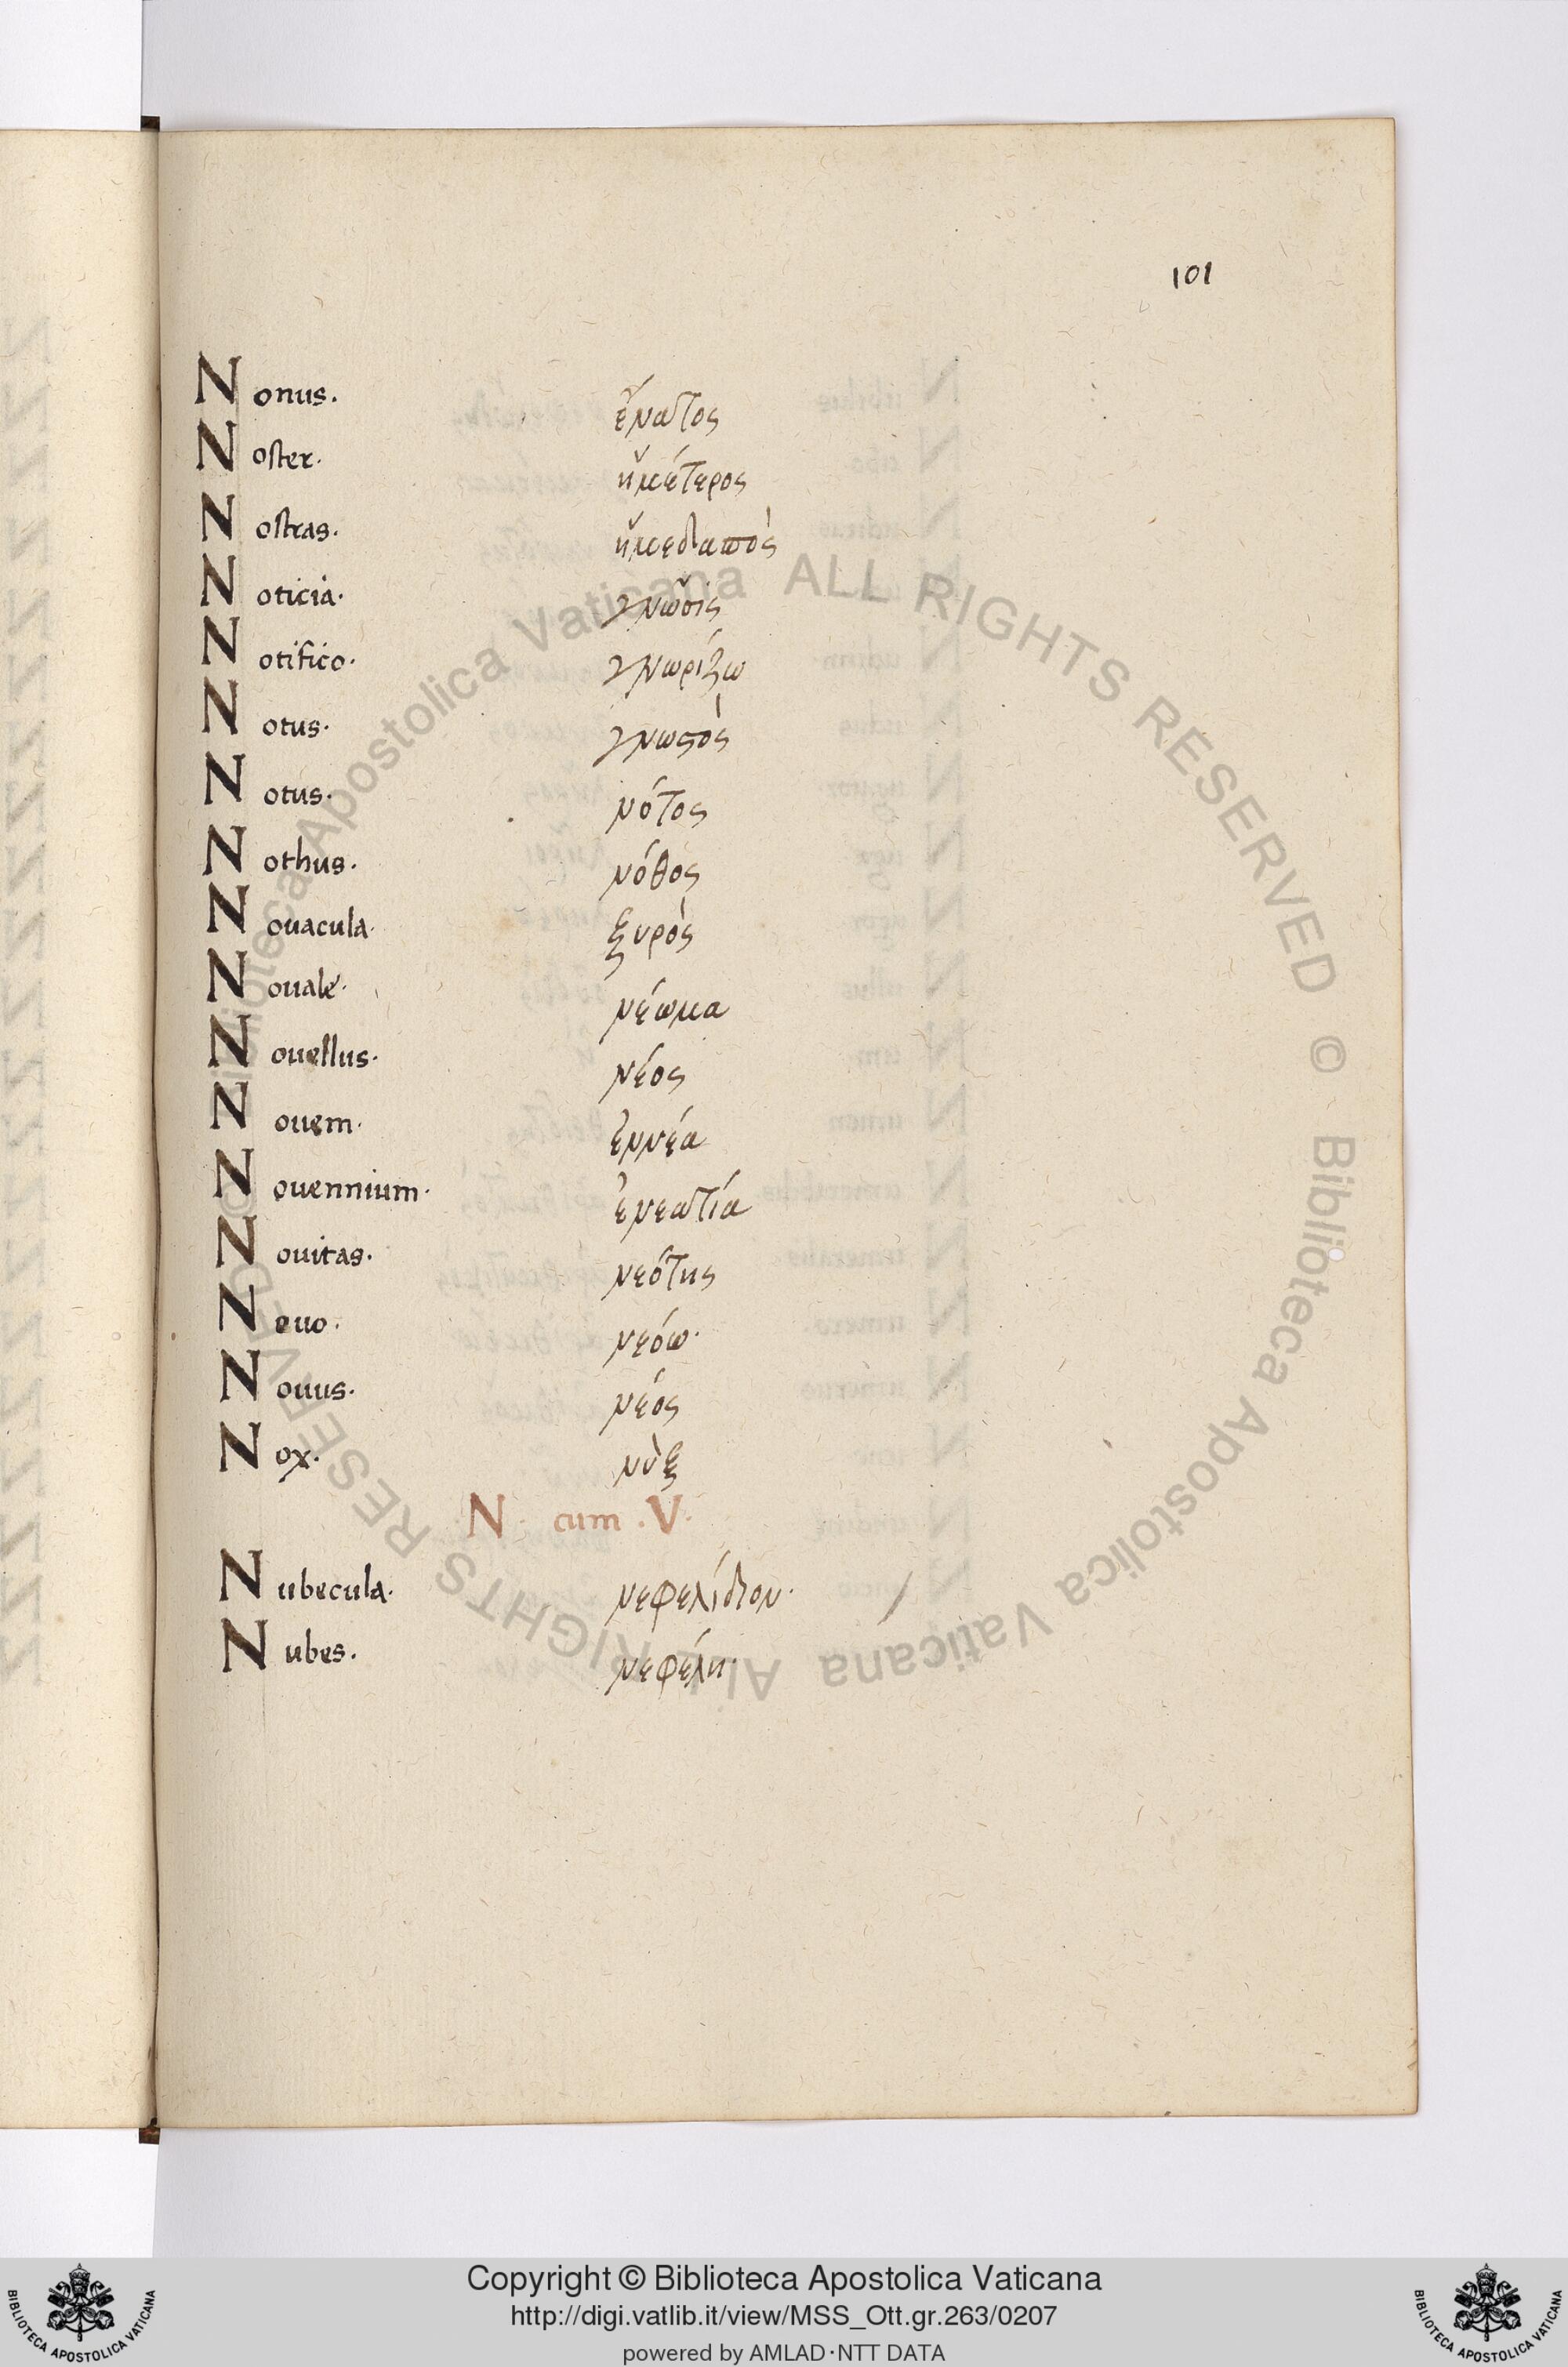 101
Nonus. ἔνατος
Noster. ἡμέτερος
Nostras. ἡμεδαπὸς
Noticia. γνῶσις
Notifico. γνωρίζω
Notus. γνωστὸς
Notus. νότος
Nothus. νόθος
Nouacula. ξυρὸς
Nouale. νέωμα
Nouellus. νέος
Nouem. ἐννέα
Nouennium. ἐνεατία
Nouitas. νεότης
Neuo. νεόω.
Nouus. νέος
Nox. νὺξ
N. cum .V.
Nubecula. νεφελίδιον.
Nubes. νεφέλη.
Biblioteca Apostolica Vaticana ALL RIGHTS RESERVED © Biblioteca Apostolica Vaticana ALL RIGHTS RESERVED ©
Copyright © Biblioteca Apostolica Vaticana
http://digi.vatlib.it/view/MSS_Ott.gr.263/0207
powered by AMLAD·NTT DATA
BIBLIOTECA APOSTOLICA VATICANA
BIBLIOTECA APOSTOLICA VATICANA